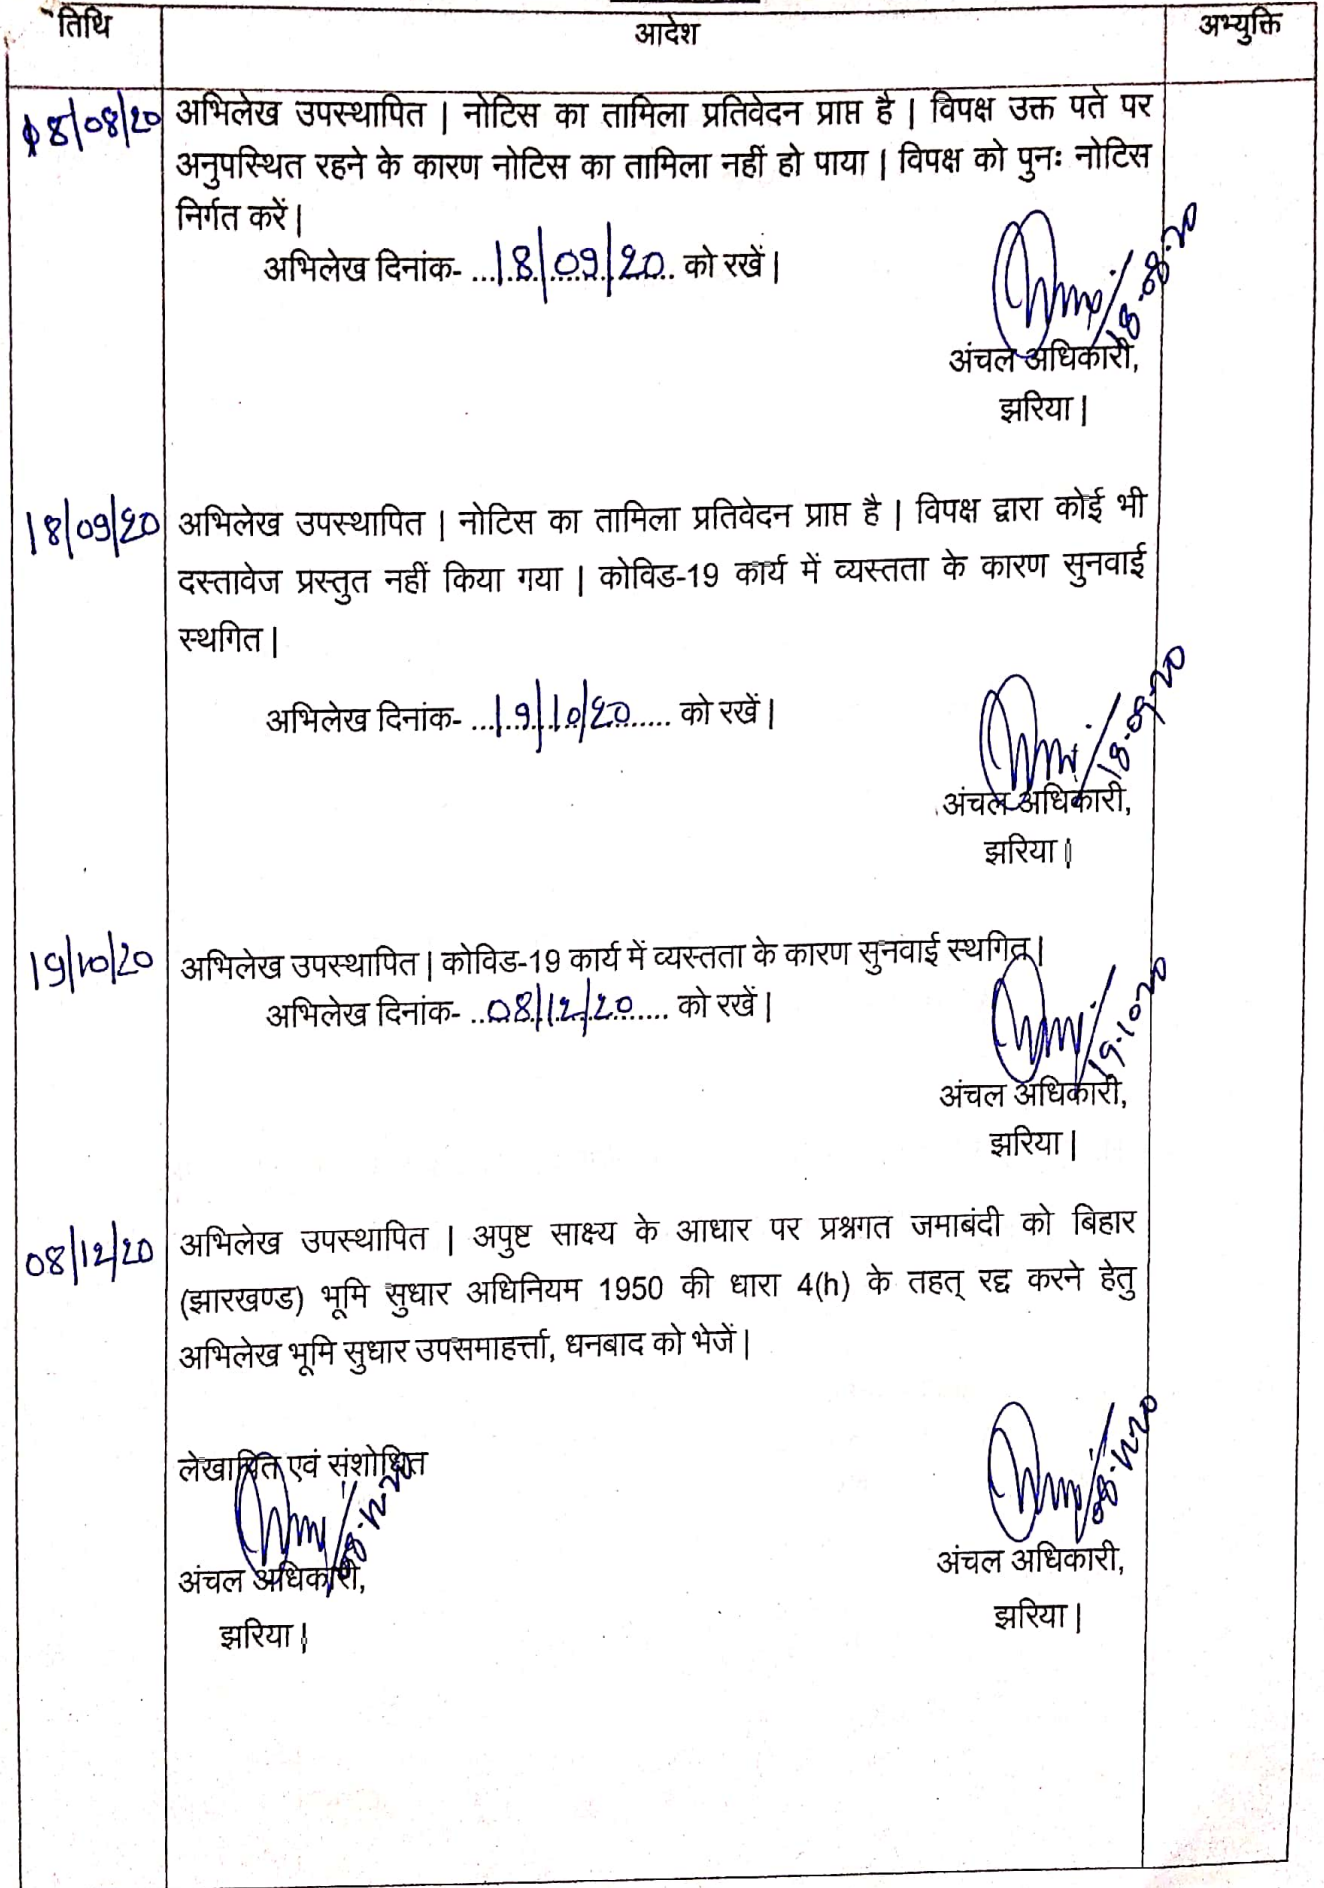 तिथि आदेश अभ्युक्ति
18/08/20 अभिलेख उपस्थापित | नोटिस का तामिला प्रतिवेदन प्राप्त है | विपक्ष उक्त पते पर
अनुपस्थित रहने के कारण नोटिस का तामिला नहीं हो पाया | विपक्ष को पुनः नोटिस
निर्गत करें |
अभिलेख दिनांक- ...18/09/20... को रखें |
18-08-20
अंचल अधिकारी,
झरिया |
18/09/20 अभिलेख उपस्थापित | नोटिस का तामिला प्रतिवेदन प्राप्त है | विपक्ष द्वारा कोई भी
दस्तावेज प्रस्तुत नहीं किया गया | कोविड-19 कार्य में व्यस्तता के कारण सुनवाई
स्थगित |
अभिलेख दिनांक- ...19/10/20...... को रखें |
18-09-20
अंचल अधिकारी,
झरिया |
19/10/20 अभिलेख उपस्थापित | कोविड-19 कार्य में व्यस्तता के कारण सुनवाई स्थगित |
अभिलेख दिनांक- ..08/12/20...... को रखें |
19-10-20
अंचल अधिकारी,
झरिया |
08/12/20 अभिलेख उपस्थापित | अपुष्ट साक्ष्य के आधार पर प्रश्नगत जमाबंदी को बिहार
(झारखण्ड) भूमि सुधार अधिनियम 1950 की धारा 4(h) के तहत् रद्द करने हेतु
अभिलेख भूमि सुधार उपसमाहर्त्ता, धनबाद को भेजें |
लेखापित एवं संशोधित
08-12-20 08-12-20
अंचल अधिकारी, अंचल अधिकारी,
झरिया | झरिया |